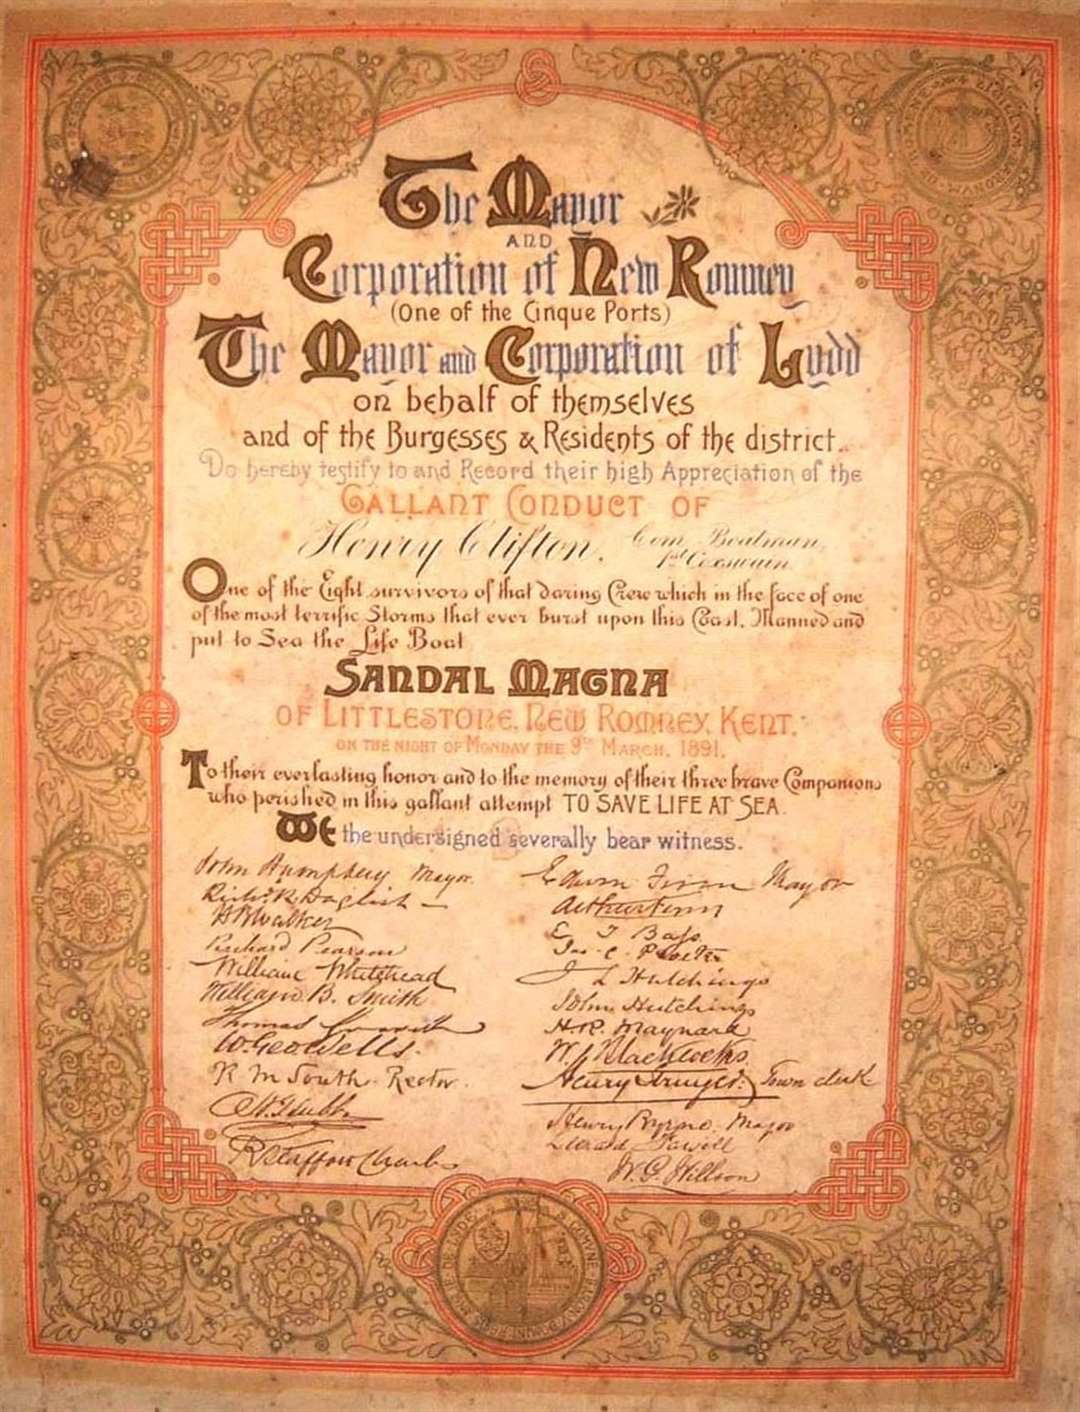 The Mayor
AND
Corporation of New Romney
(One of the Cinque Ports)
The Mayor and Corporation of Lydd
on behalf of themselves
and of the Burgesses & Residents of the district.
Do hereby testify to and Record their high Appreciation of the
GALLANT CONDUCT OF
Henry Clifton. Com. Boatman,
1st Coxswain
One of the Eight survivors of that daring Crew which in the face of one
of the most terrific Storms that ever burst upon this Coast, Manned and
put to Sea the Life Boat
SANDAL MAGNA
OF LITTLESTONE, NEW ROMNEY, KENT.
ON THE NIGHT OF MONDAY THE 9TH MARCH, 1891.
To their everlasting honor and to the memory of their three brave Companions
who perished in this gallant attempt TO SAVE LIFE AT SEA.
WE the undersigned severally bear witness.
John Humphrey Mayor.
Richd R. Daglish
Walker
Richard Pearson
William Whitehead
William B. Smith
Thomas
W. Geo Wells.
R M South. Rector.
Stubbs
Edwin Finn Mayor
Arthur Finn
E T Bass
Jas. C.
J L Hutchings
John Hutchings
H. R. Maynard
W. J. Blacklocks
Henry Stringer. Town clerk
Henry Byrne. Mayor
W. G. Willson